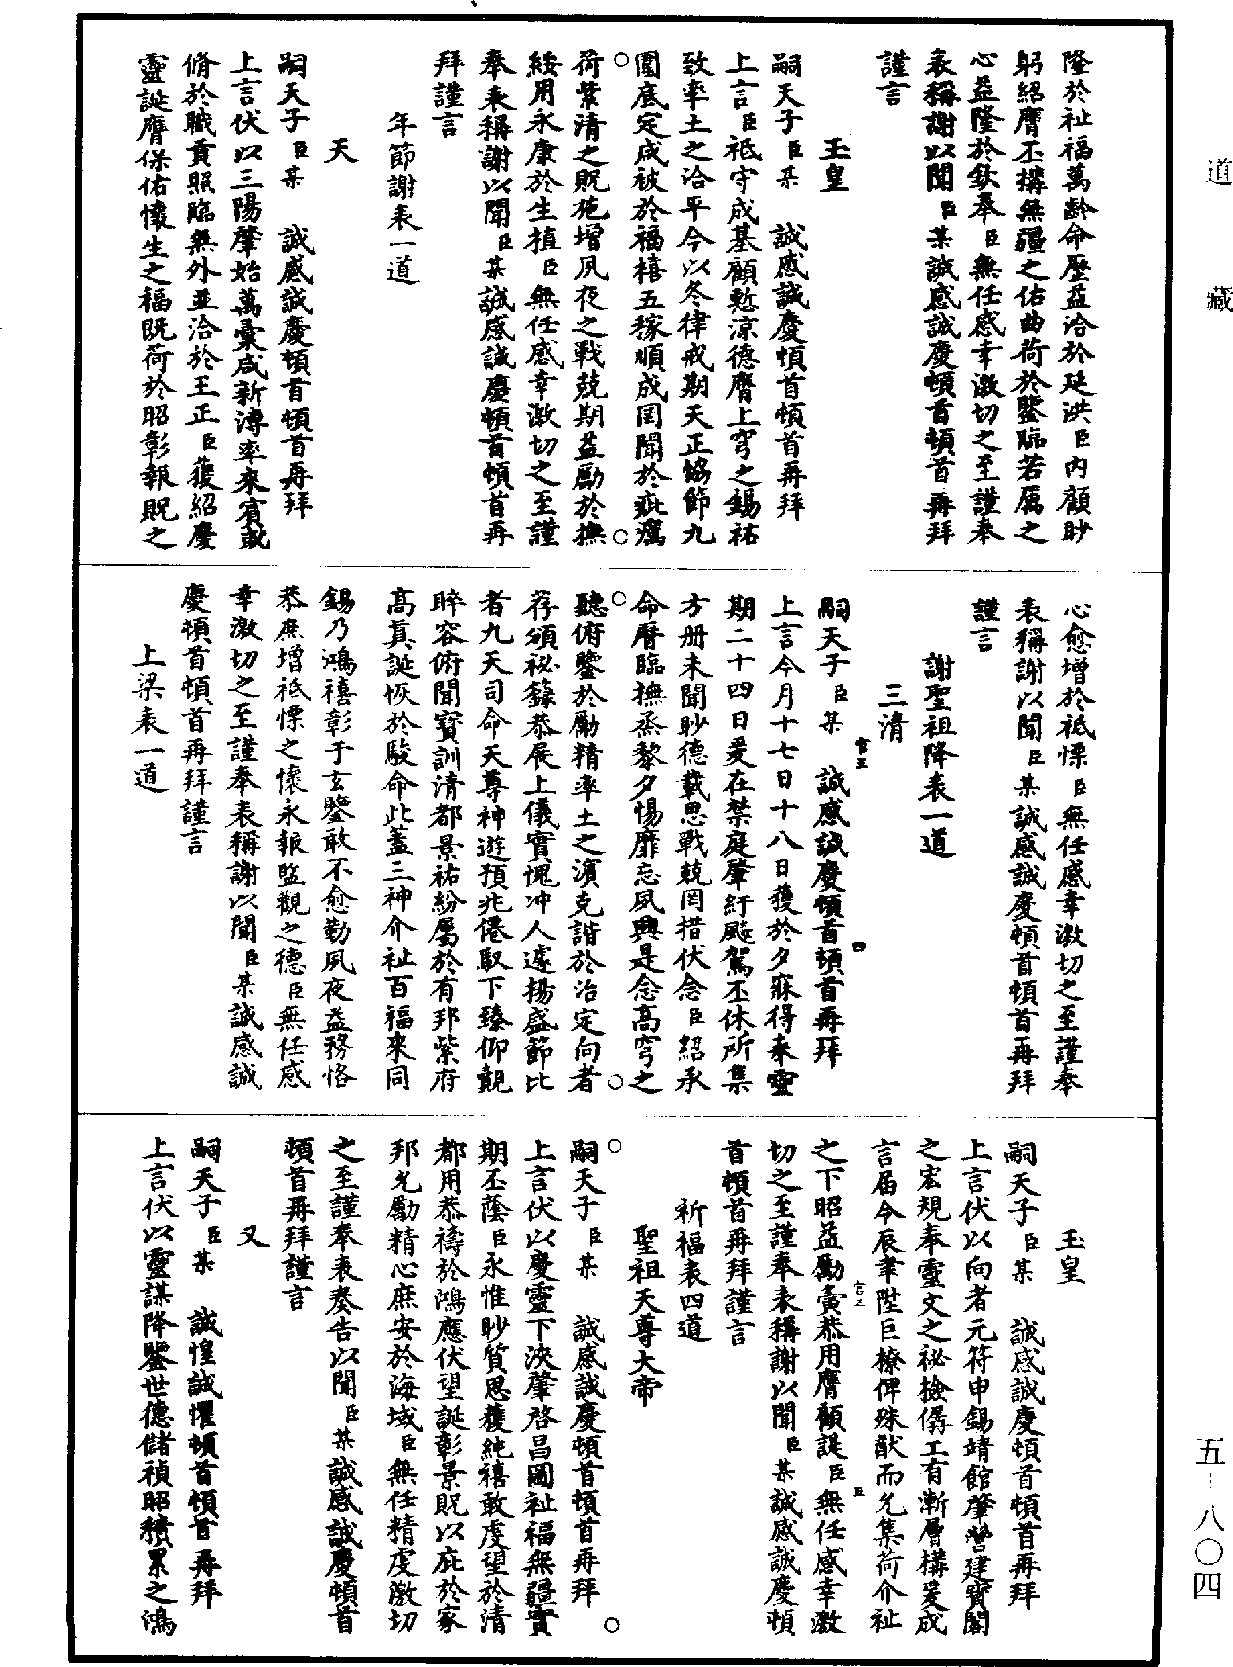 隆於祉福萬齡命歷益洽於延洪臣內顧眇
躬紹膺丕搆無疆之佑曲荷於鑒臨若厲之
心益隆於欽奉臣無任感幸激切之至謹奉
表稱謝以聞臣某誠感誠慶頓首頓首再拜
謹言
玉皇
嗣天子臣某 誠感誠慶頓首頓首再拜
上言臣祗守成基顧慙涼德膺上穹之錫祐
致率土之洽平今以冬律戒期天正恊節九
圍底定咸被於福禧五稼順成罔聞於疵癘
荷紫清之貺施增夙夜之戰兢期益勵於撫
綏用永康於生植臣無任感幸激切之至謹
奉表稱謝以聞臣某誠感誠慶頓首頓首再
拜謹言
年節謝表一道
天
嗣天子臣某 誠感誠慶頓首頓首再拜
上言伏以三陽肇始萬彙咸新溥率來賓或
脩於職貢照臨無外並洽於王正臣獲紹慶
靈誕膺保佑懷生之福既荷於昭彰報貺之
心愈增於祗慄臣無任感幸激切之至謹奉
表稱謝以聞臣某誠感誠慶頓首頓首再拜
謹言
謝聖祖降表一道
三清
嗣天子臣某 誠感誠慶頓首頓首再拜
上言今月十七日十八日獲於夕寐得奉靈
期二十四日爰在禁庭肇紆飈駕丕休所集
方冊未聞眇德載思戰兢罔措伏念臣紹承
命曆臨撫烝黎夕惕靡忘夙興是念高穹之
聽俯鑒於勵精率土之濱克諧於治定向者
荐頒祕籙恭展上儀實愧冲人遽揚盛節比
者九天司命天尊神遊預兆僊馭下臻仰覿
睟容俯聞寶訓清都景祐紛屬於有邦紫府
高真誕恢於駿命此蓋三神介祉百福來同
錫乃鴻禧彰于玄鑒敢不愈勤夙夜益務恪
恭庶增祗慄之懷永報監觀之德臣無任感
幸激切之至謹奉表稱謝以聞臣某誠感誠
慶頓首頓首再拜謹言
上梁表一道
玉皇
嗣天子臣某 誠感誠慶頓首頓首再拜
上言伏以向者元符申錫靖館肇營建寶閣
之宏規奉靈文之祕撿僝工有漸層構爰成
言屆今辰聿陞巨橑俾殊猷而允集荷介祉
之下昭益勵寅恭用膺顧諟臣無任感幸激
切之至謹奉表稱謝以聞臣某誠感誠慶頓
首頓首再拜謹言
祈福表四道
聖祖天尊大帝
嗣天子臣某 誠感誠慶頓首頓首再拜
上言伏以慶靈下浹肇啓昌圖祉福無疆實
期丕蔭臣永惟眇質思獲純禧敢虔望於清
都用恭禱於鴻應伏望誕彰景貺以庇於家
邦允勵精心庶安於海域臣無任精虔激切
之至謹奉表奏告以聞臣某誠感誠慶頓首
頓首再拜謹言
又
嗣天子臣某 誠惶誠懼頓首頓首再拜
上言伏以靈謀降鑒世德儲禎昭積累之鴻
道藏
五-八〇四